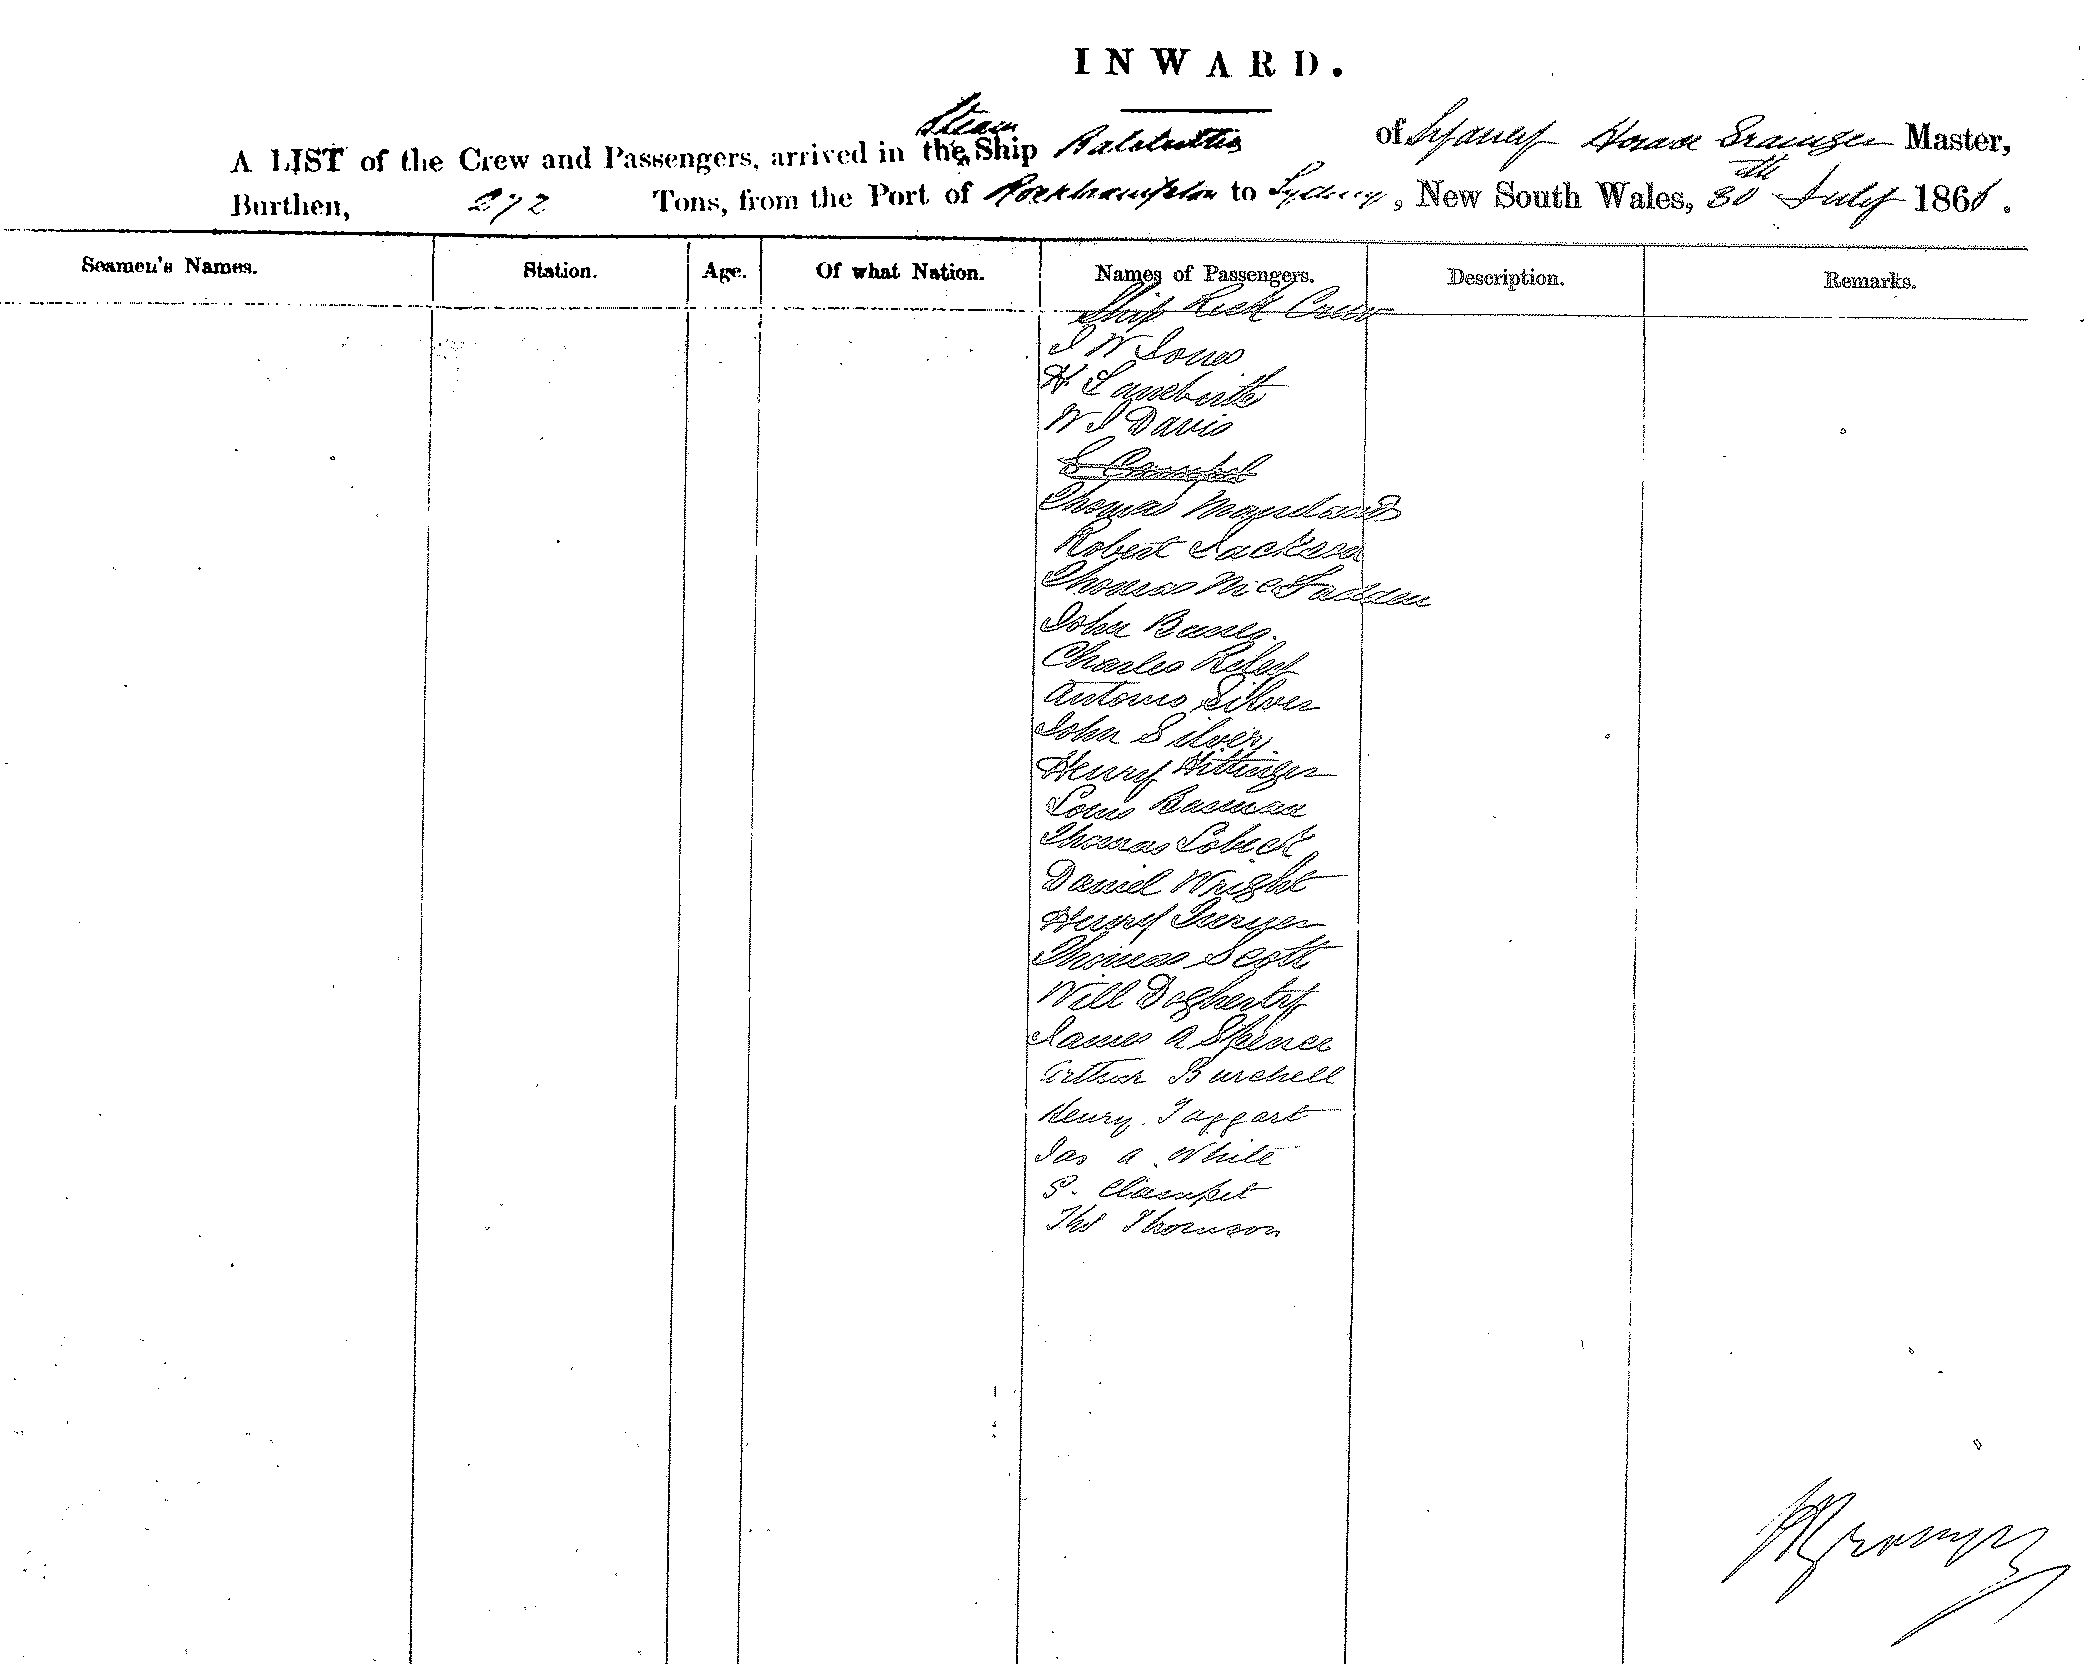 INWARD.
Steam
A LIST of the Crew and Passengers, arrived in the Ship Balclutha of Sydney Horace Grainger Master,
Burthen, 272 Tons, from the Port of Rockhampton to Sydney, New South Wales, 30th July 1861.
Seamen's Names. Station. Age. Of what Nation. Names of Passengers. Description. Remarks.
Ship Crew
J W Jones
H
W J Davis
Thomas
Robert Jackson
Thomas McFadden
John
Charles
Antonio Silver
John Silver
Henry Hittinger
Louis
Thomas Lobick
Daniel Wright
Henry
Thomas Scott
Will Dogherty
James A Spence
Arthur Burchell
Henry Taggart
Jas A White
S. Clampet
Ths Thomson
H Grainger